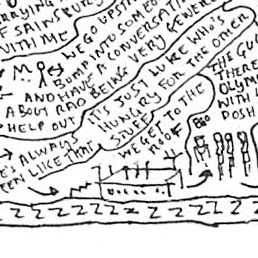 RRYING
F SAINSBURY
WITH ME
WE GO UPST
BUMP INTO SOMEO
AND HAVE A CONVERSAT
ABOUT RAD BEING VERY GENER
HELP OUT
IT'S JUST LUKE WHO'S
HUNGRY FOR THE OTHER
STUFF
ALWAYS
EEN LIKE THAT
WE GET TO THE
NOOK
THE GU
THERE
OLYM
WITH
POSH
ZZZZZZZZZZZ